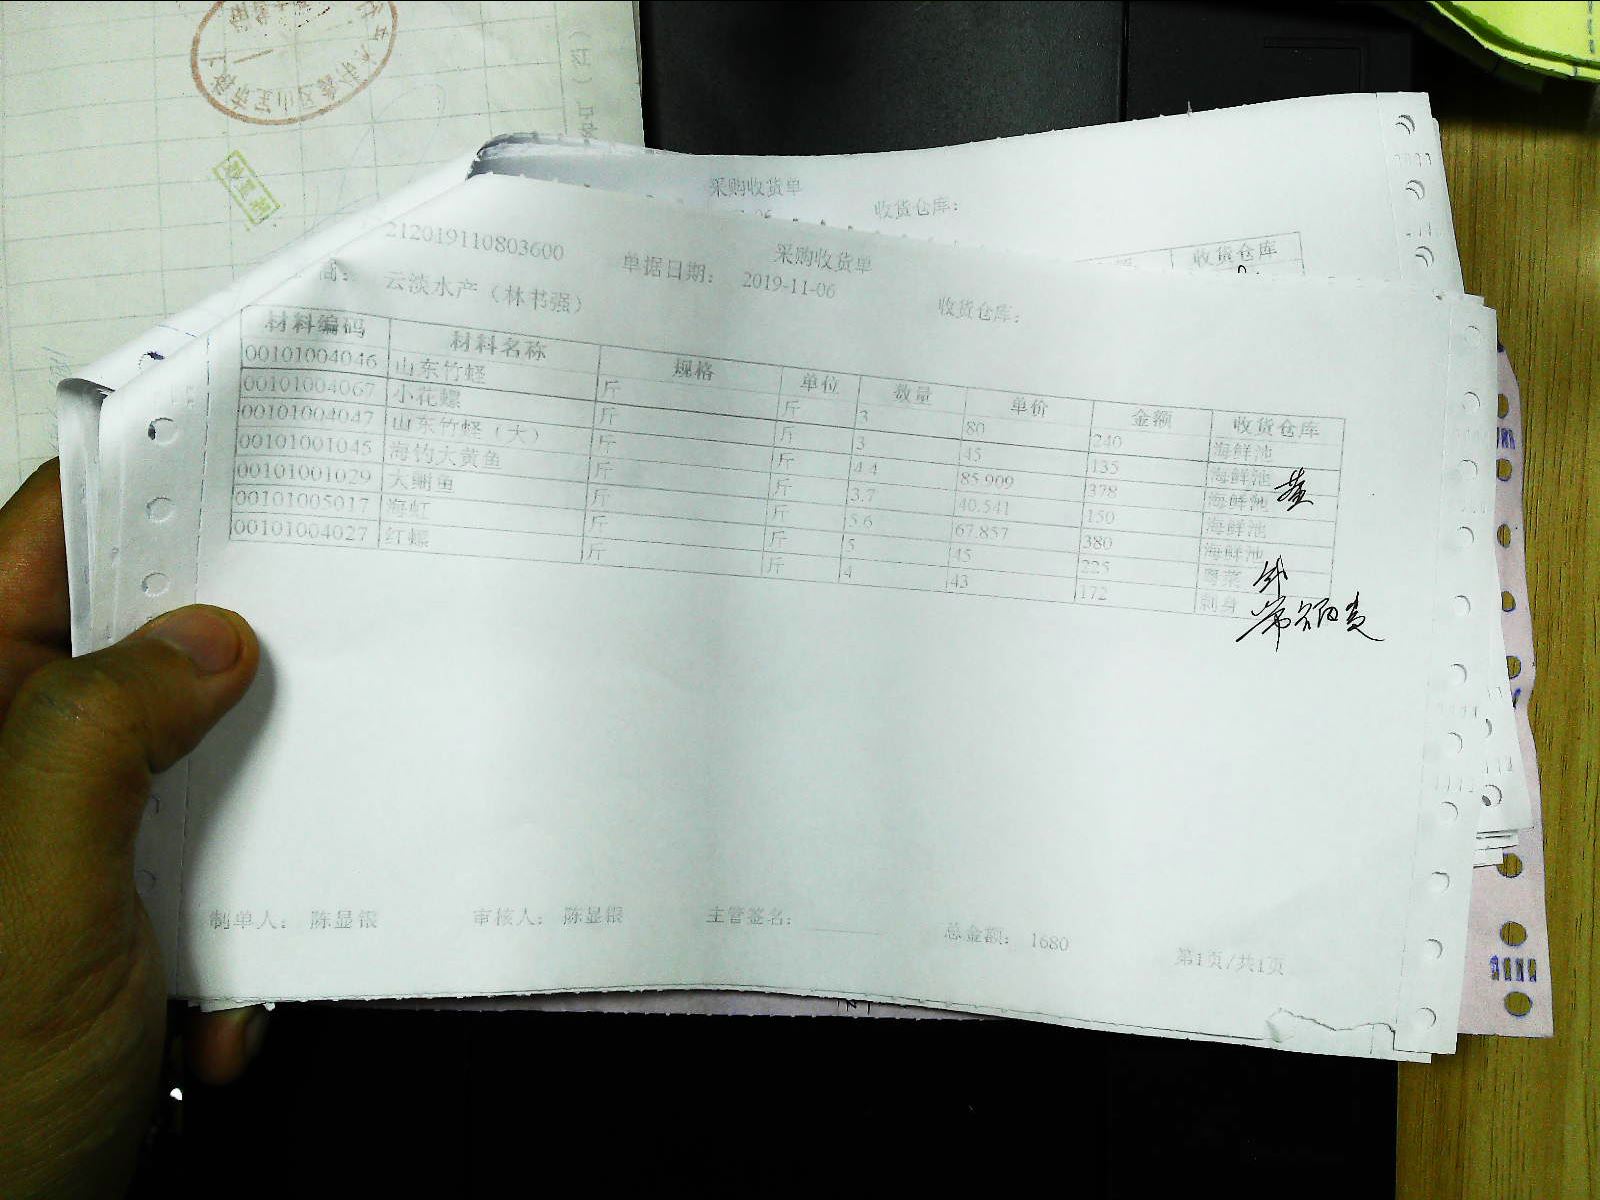 采购收货单
收货仓库：
收货仓库
212019110803600
单据日期： 2019-11-06
采购收货单
商： 云淡水产（林书强）
收货仓库：
材料编码 材料名称 规格 单位 数量 单价 金额 收货仓库
00101004046 山东竹蛏 斤 斤 3 80 240 海鲜池
00101004067 小花螺 斤 斤 3 45 135 海鲜池
00101004047 山东竹蛏（大） 斤 斤 4.4 85.909 378 海鲜池
00101001045 海竹大黄鱼 斤 斤 3.7 40.541 150 海鲜池
00101001029 大鲷鱼 斤 斤 5.6 67.857 380 海鲜池
00101005017 海虹 斤 斤 5 45 225 粤菜
00101004027 红螺 斤 斤 4 43 172 刺身
制单人： 陈显银 审核人： 陈显银 主管签名： 总金额： 1680 第1页/共1页